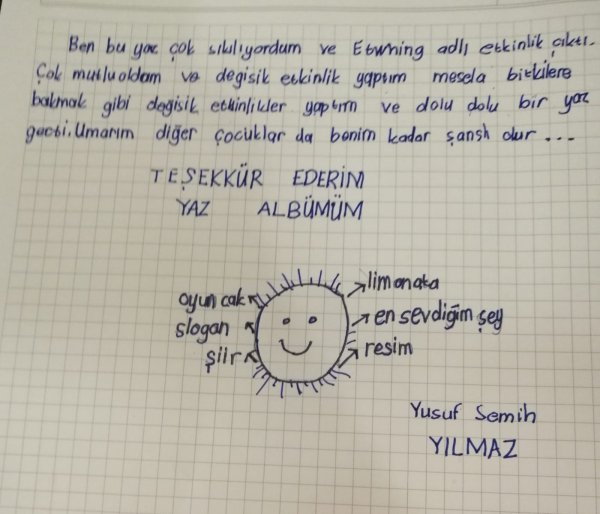 Ben bu yaz çok sıkılıyordum ve Etwining adlı etkinlik çıktı.
Çok mutlu oldam ve degisik etkinlik yaptım mesela bitkilere
bakmak gibi degisik etkinlikler yaptım ve dolu dolu bir yaz
gecti. Umarım diğer çocuklar da benim kadar şanslı olur ...
TEŞEKKÜR EDERİM
YAZ ALBÜMÜM
oyun cak
slogan
şiir
limonata
en sevdiğim şey
resim
Yusuf Semih
YILMAZ